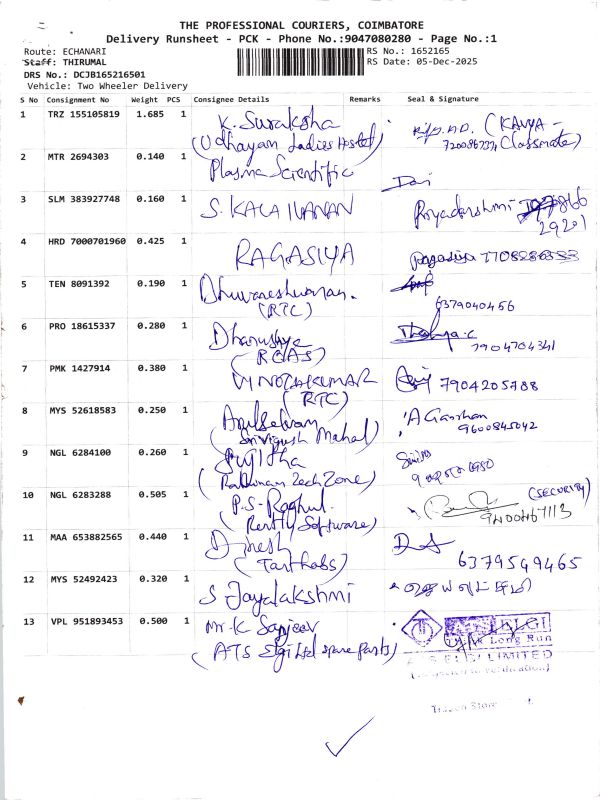 THE PROFESSIONAL COURIERS, COIMBATORE
Delivery Runsheet - PCK - Phone No.:9047080280 - Page No.:1
Route: ECHANARI
RS No.: 1652165
Staff: THIRUMAL
RS Date: 05-Dec-2025
DRS No.: DCJB165216501
Vehicle: Two Wheeler Delivery
S No Consignment No Weight PCS Consignee Details Remarks Seal & Signature
1 TRZ 155105819 1.685 1 K. Suraksha (KAVYA -
(Udhayam Ladies Hostel) Classmate)
2 MTR 2694303 0.140 1 Plasma Scientific
3 SLM 383927748 0.160 1 S. KALAIVANAN Priyadarshini
29201
4 HRD 7000701960 0.425 1 RAGASIYA Ragasiya
5 TEN 8091392 0.190 1 Dhuvaneshwaran.
(RTC) 6379040456
6 PRO 18615337 0.280 1 Dhanushya
(RCAS) 7904704341
7 PMK 1427914 0.380 1 VINOTHKUMAR 7904205788
(RTC)
8 MYS 52618583 0.250 1 Arulselvan
(Srivignesh Mahal) 9600845042
9 NGL 6284100 0.260 1 Sujitha
(Rathinam TechZone)
10 NGL 6283288 0.505 1 P.S. Raghul. (SECURITY)
(Rently Software)
11 MAA 653882565 0.440 1 Dinesh
(Tarthabs) 6379549465
12 MYS 52492423 0.320 1 S Jayalakshmi
13 VPL 951893453 0.500 1 Mr. K Sanjeev
(ATS Elgi Ltd spare Parts)
ELGI
Long Run
LIMITED